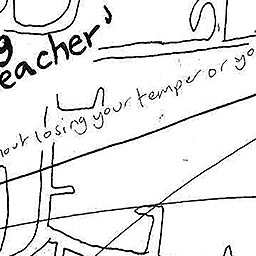 g
eacher'
hout losing your temper or yo